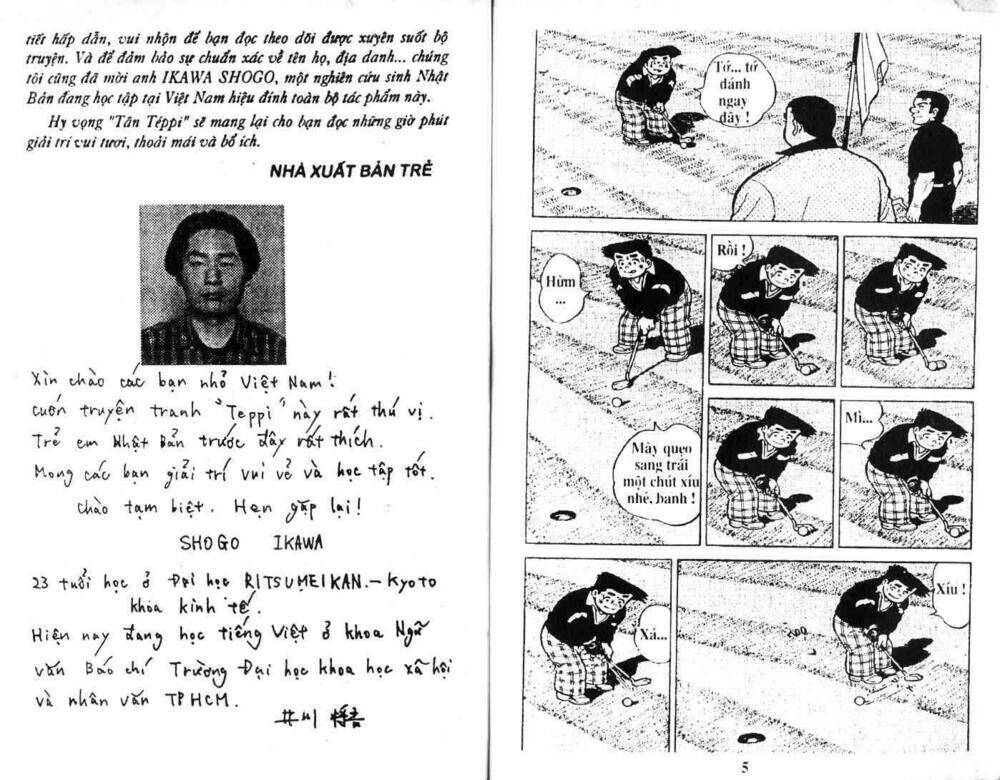 tiết hấp dẫn, vui nhộn để bạn đọc theo dõi được xuyên suốt bộ
truyện. Và để đảm bảo sự chuẩn xác về tên họ, địa danh... chúng
tôi cũng đã mời anh IKAWA SHOGO, một nghiên cứu sinh Nhật
Bản đang học tập tại Việt Nam hiệu đính toàn bộ tác phẩm này.
Hy vọng "Tân Téppi" sẽ mang lại cho bạn đọc những giờ phút
giải trí vui tươi, thoải mái và bổ ích.
NHÀ XUẤT BẢN TRẺ
Xin chào các bạn nhỏ Việt Nam!
cuốn truyện tranh "Teppi" này rất thú vị.
Trẻ em Nhật Bản trước đây rất thích.
Mong các bạn giải trí vui vẻ và học tập tốt.
chào tạm biệt. Hẹn gặp lại!
SHOGO IKAWA
23 tuổi học ở Đại học RITSUMEIKAN.-Kyoto
khoa kinh tế.
Hiện nay đang học tiếng Việt ở khoa Ngữ
văn Báo chí Trường Đại học khoa học xã hội
và nhân văn TPHCM.
井川
Tớ... tớ
đánh
ngay
đây !
Hừm
...
Rồi !
Mày quẹo
sang trái
một chút xíu
nhé, banh !
Mi...
Xá...
Xíu !
5